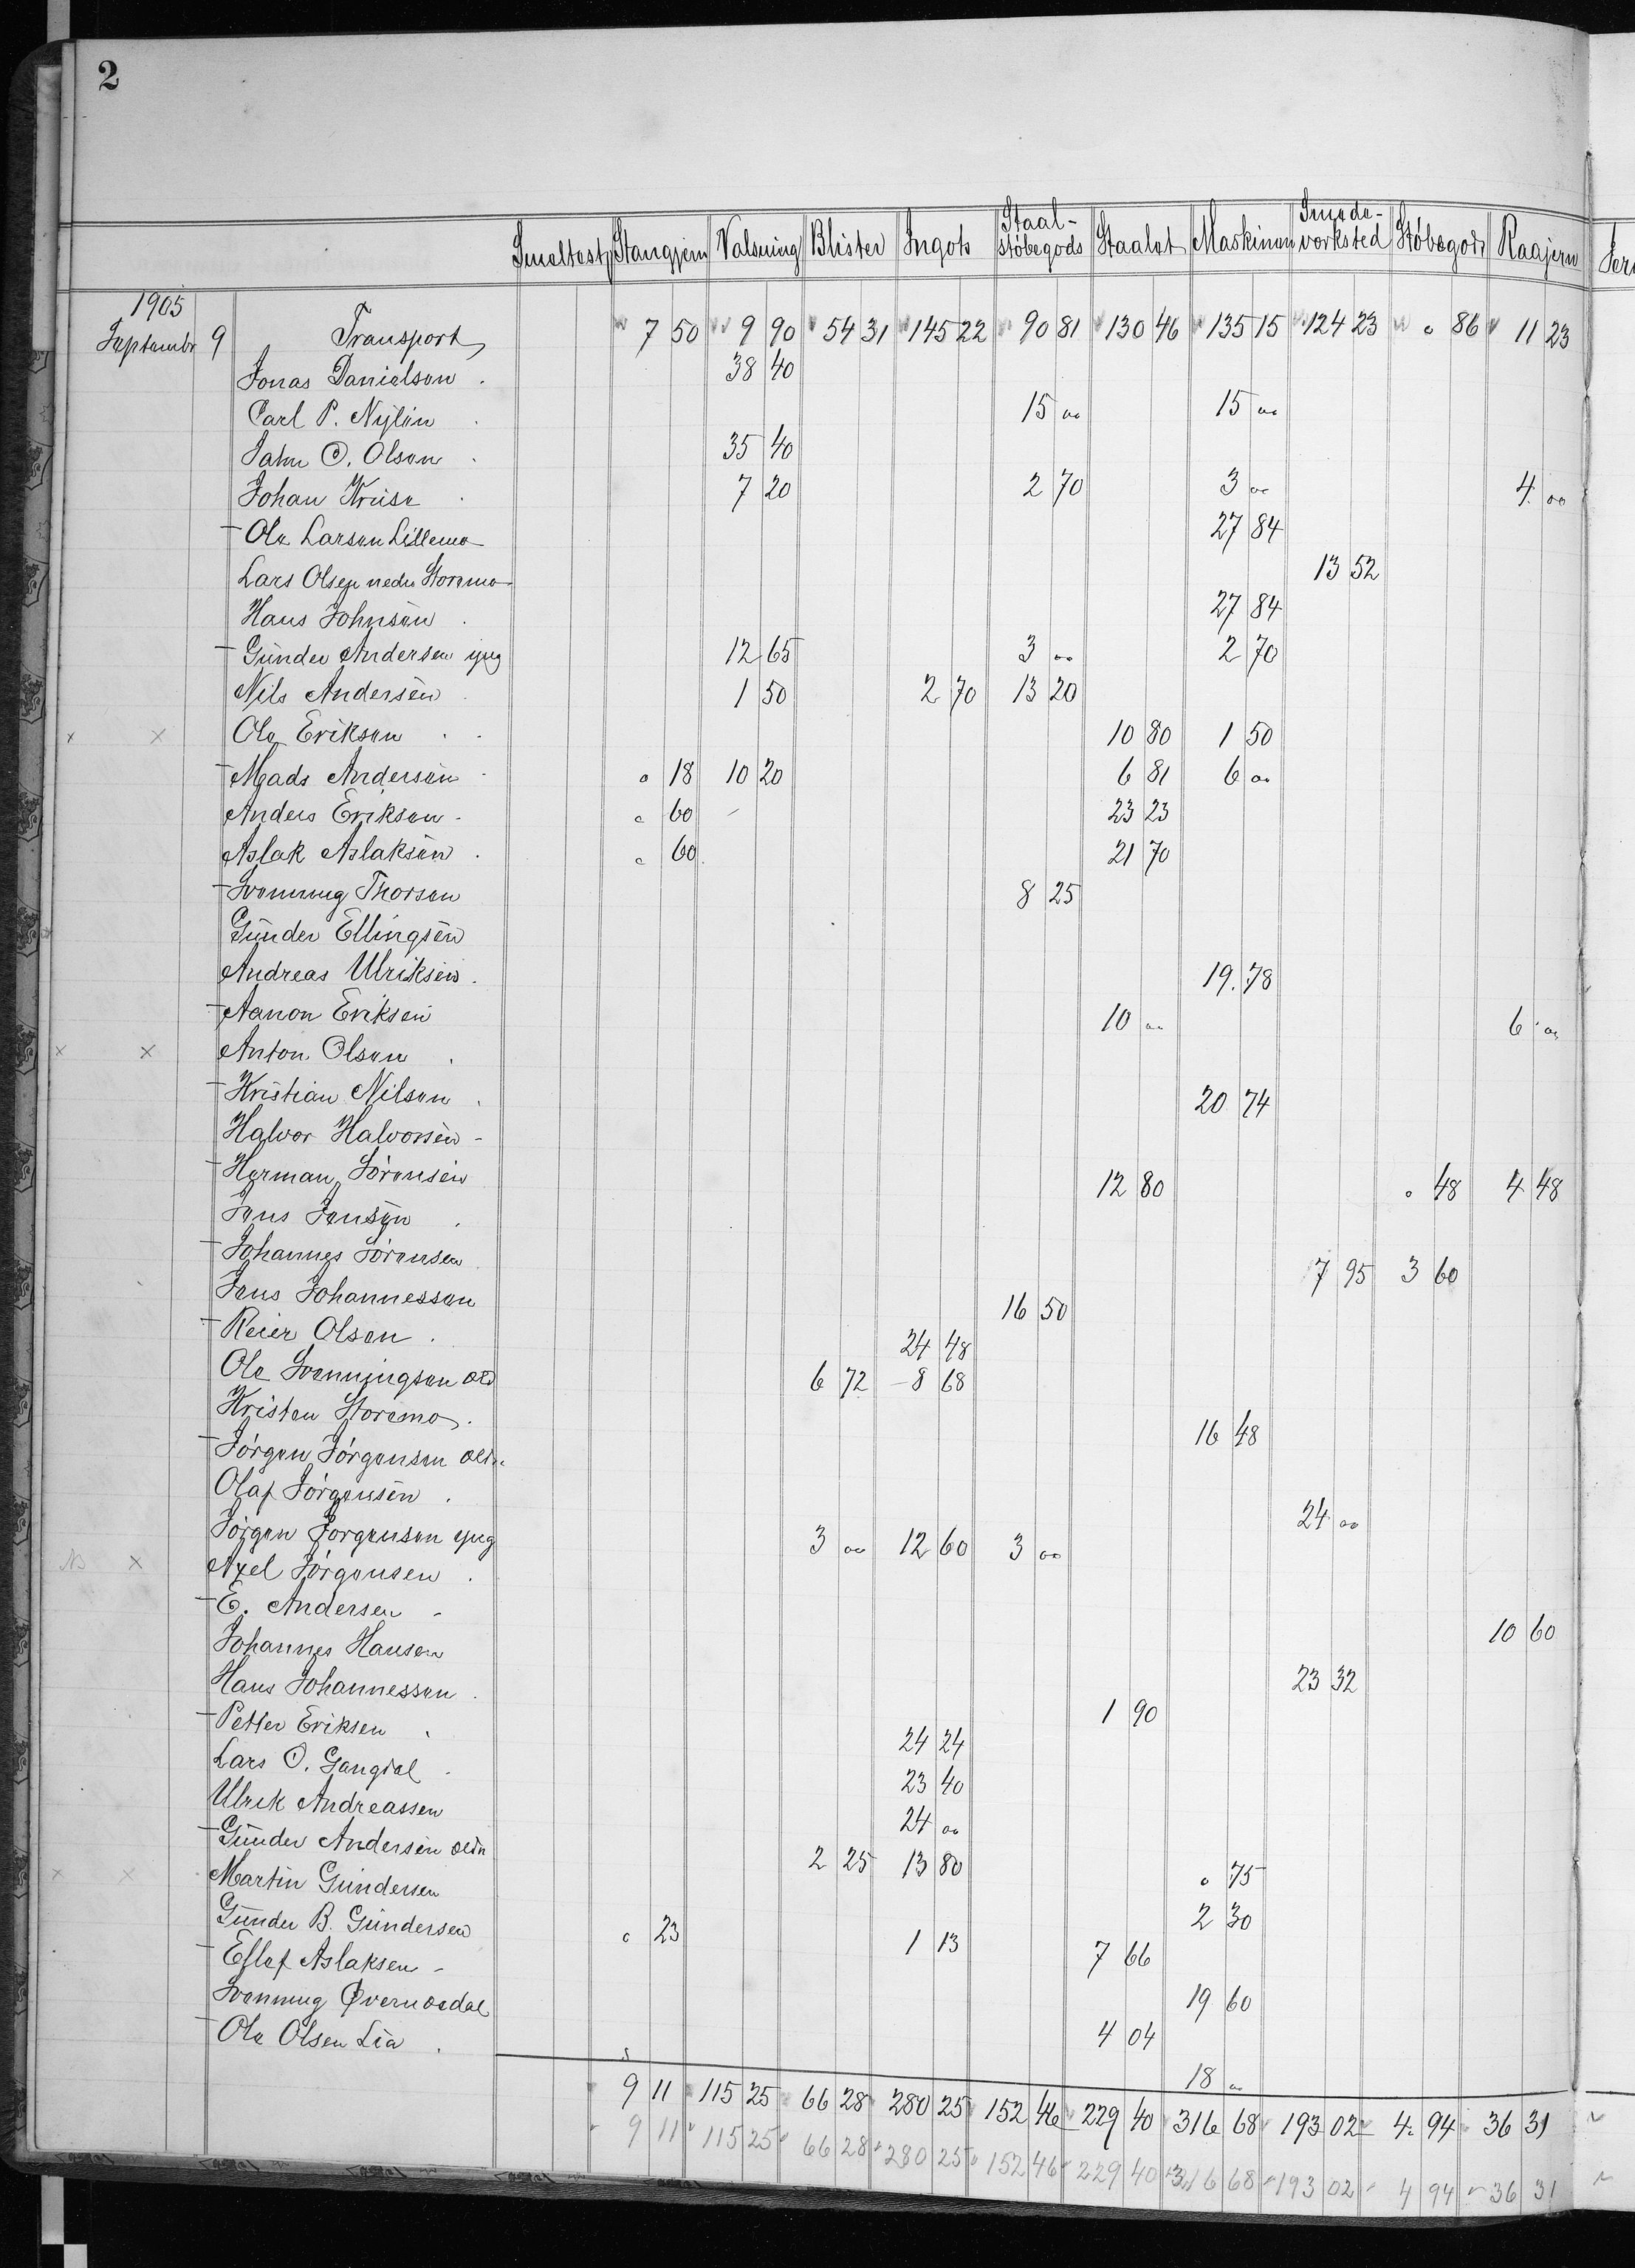 2
Smeltest. Stangjern Valsning Blister Ingots Staal-støbegods Staalet Maskinen Smedeverksted Støbegods Raajern
1905
September 9 Transport 7 50 9 90 54 31 145 22 90 81 130 46 135 15 124 23 " 86 11 23
Jonas Danielsen 38 40
Carl P. Nylén 15 " 15 "
Jahn O. Olsen 35 40
Johan Kruse 7 20 2 70 3 " 4 "
Ole Larsen Lillemo 27 84
Lars Olsen nedre Storemo 13 52
Hans Johnsen 27 84
Gunder Andersen yng 12 65 3 " 2 70
Nils Andersen 1 50 2 70 13 20
x x Ole Eriksen 10 80 1 50
Mads Andersen " 18 10 20 6 81 6 "
Anders Eriksen " 60 23 23
Aslak Aslaksen " 60 21 70
Svenning Thorsen 8 25
Gunder Ellingsen
Andreas Ulriksen 19.78
Aanon Eriksen 10 " 6 "
x x Anton Olsen
Kristian Nilsen 20 74
Halvor Halvorsen
Herman Sørensen 12 80 " 48 4 48
Jens Jensen
Johannes Sørensen 7 95 3 60
Jens Johannessen 16 50
Reier Olsen 24 48
Ole Svenningsen old 6 72 8 68
Kristen Storemo 16 48
Jørgen Jørgensen old.
Olaf Jørgensen 24 "
Jørgen Jørgensen yng 3 " 12 60 3 "
NB x Axel Jørgensen
E. Andersen
Johannes Hansen 10 60
Hans Johannessen 23 32
Petter Eriksen 1 90
Lars O. Gangdal 24 24
Ulrik Andreassen 23 40
Gunder Andersen old 24 "
x x Martin Gundersen 2 25 13 80 " 75
Gunder B. Gundersen " 23 2 30
Ellef Aslaksen 1 13 7 66
Svenning Øvernesdal 19 60
Ole Olsen Lia 4 04
18 "
9 11 115 25 66 28 280 25 152 46 229 40 316 68 193 02 4 94 36 31
9 11 115 25 66 28 280 25 152 46 229 40 316 68 193 02 4 94 36 31